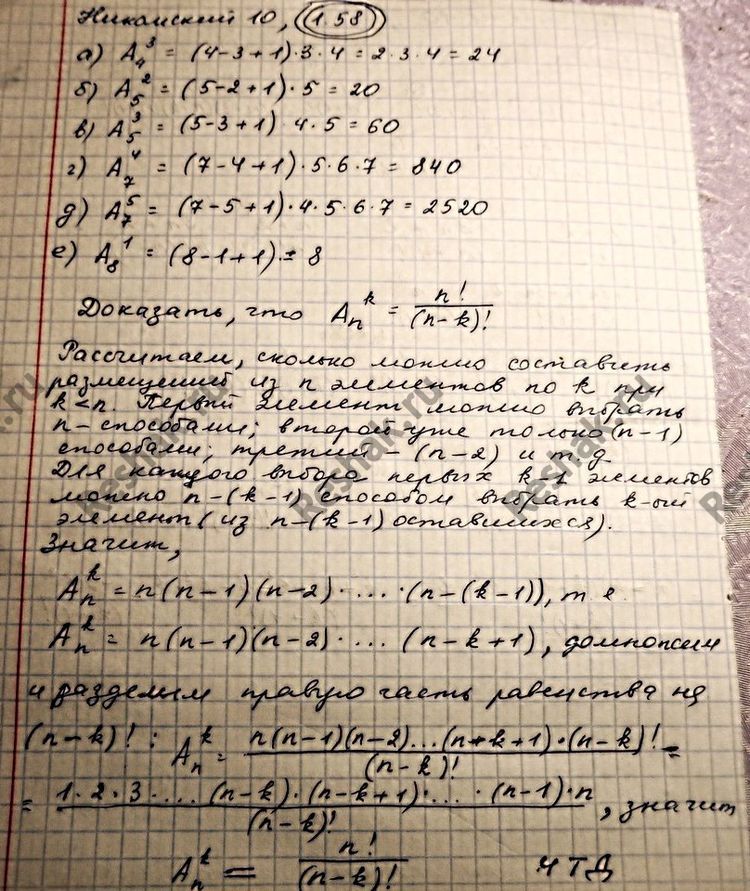 Никольский 10, 1.58
а) A₄³ = (4-3+1)·3·4 = 2·3·4 = 24
б) A₅² = (5-2+1)·5 = 20
в) A₅³ = (5-3+1)·4·5 = 60
г) A₇⁴ = (7-4+1)·5·6·7 = 840
д) A₇⁵ = (7-5+1)·4·5·6·7 = 2520
е) A₈¹ = (8-1+1) = 8
Доказать, что Aₙᵏ = n!/(n-k)!
Рассчитаем, сколько можно составить
размещений из n элементов по k при
k<n. Первый элемент можно выбрать
n-способами; второй уже только (n-1)
способами; третий - (n-2) и т д
Для каждого выбора первых k-1 элементов
можно n-(k-1) способом выбрать k-ый
элемент (из n-(k-1) оставшихся).
Значит,
Aₙᵏ = n(n-1)(n-2)·...·(n-(k-1)), т е
Aₙᵏ = n(n-1)(n-2)·...(n-k+1), домножим
и разделим правую часть равенства на
(n-k)!: Aₙᵏ = n(n-1)(n-2)...(n-k+1)·(n-k)!/(n-k)! =
= 1·2·3·...(n-k)·(n-k+1)·...·(n-1)·n/(n-k)!, значит
Aₙᵏ = n!/(n-k)! ЧТД
Reshak.ru
Reshak.ru
Reshak.ru